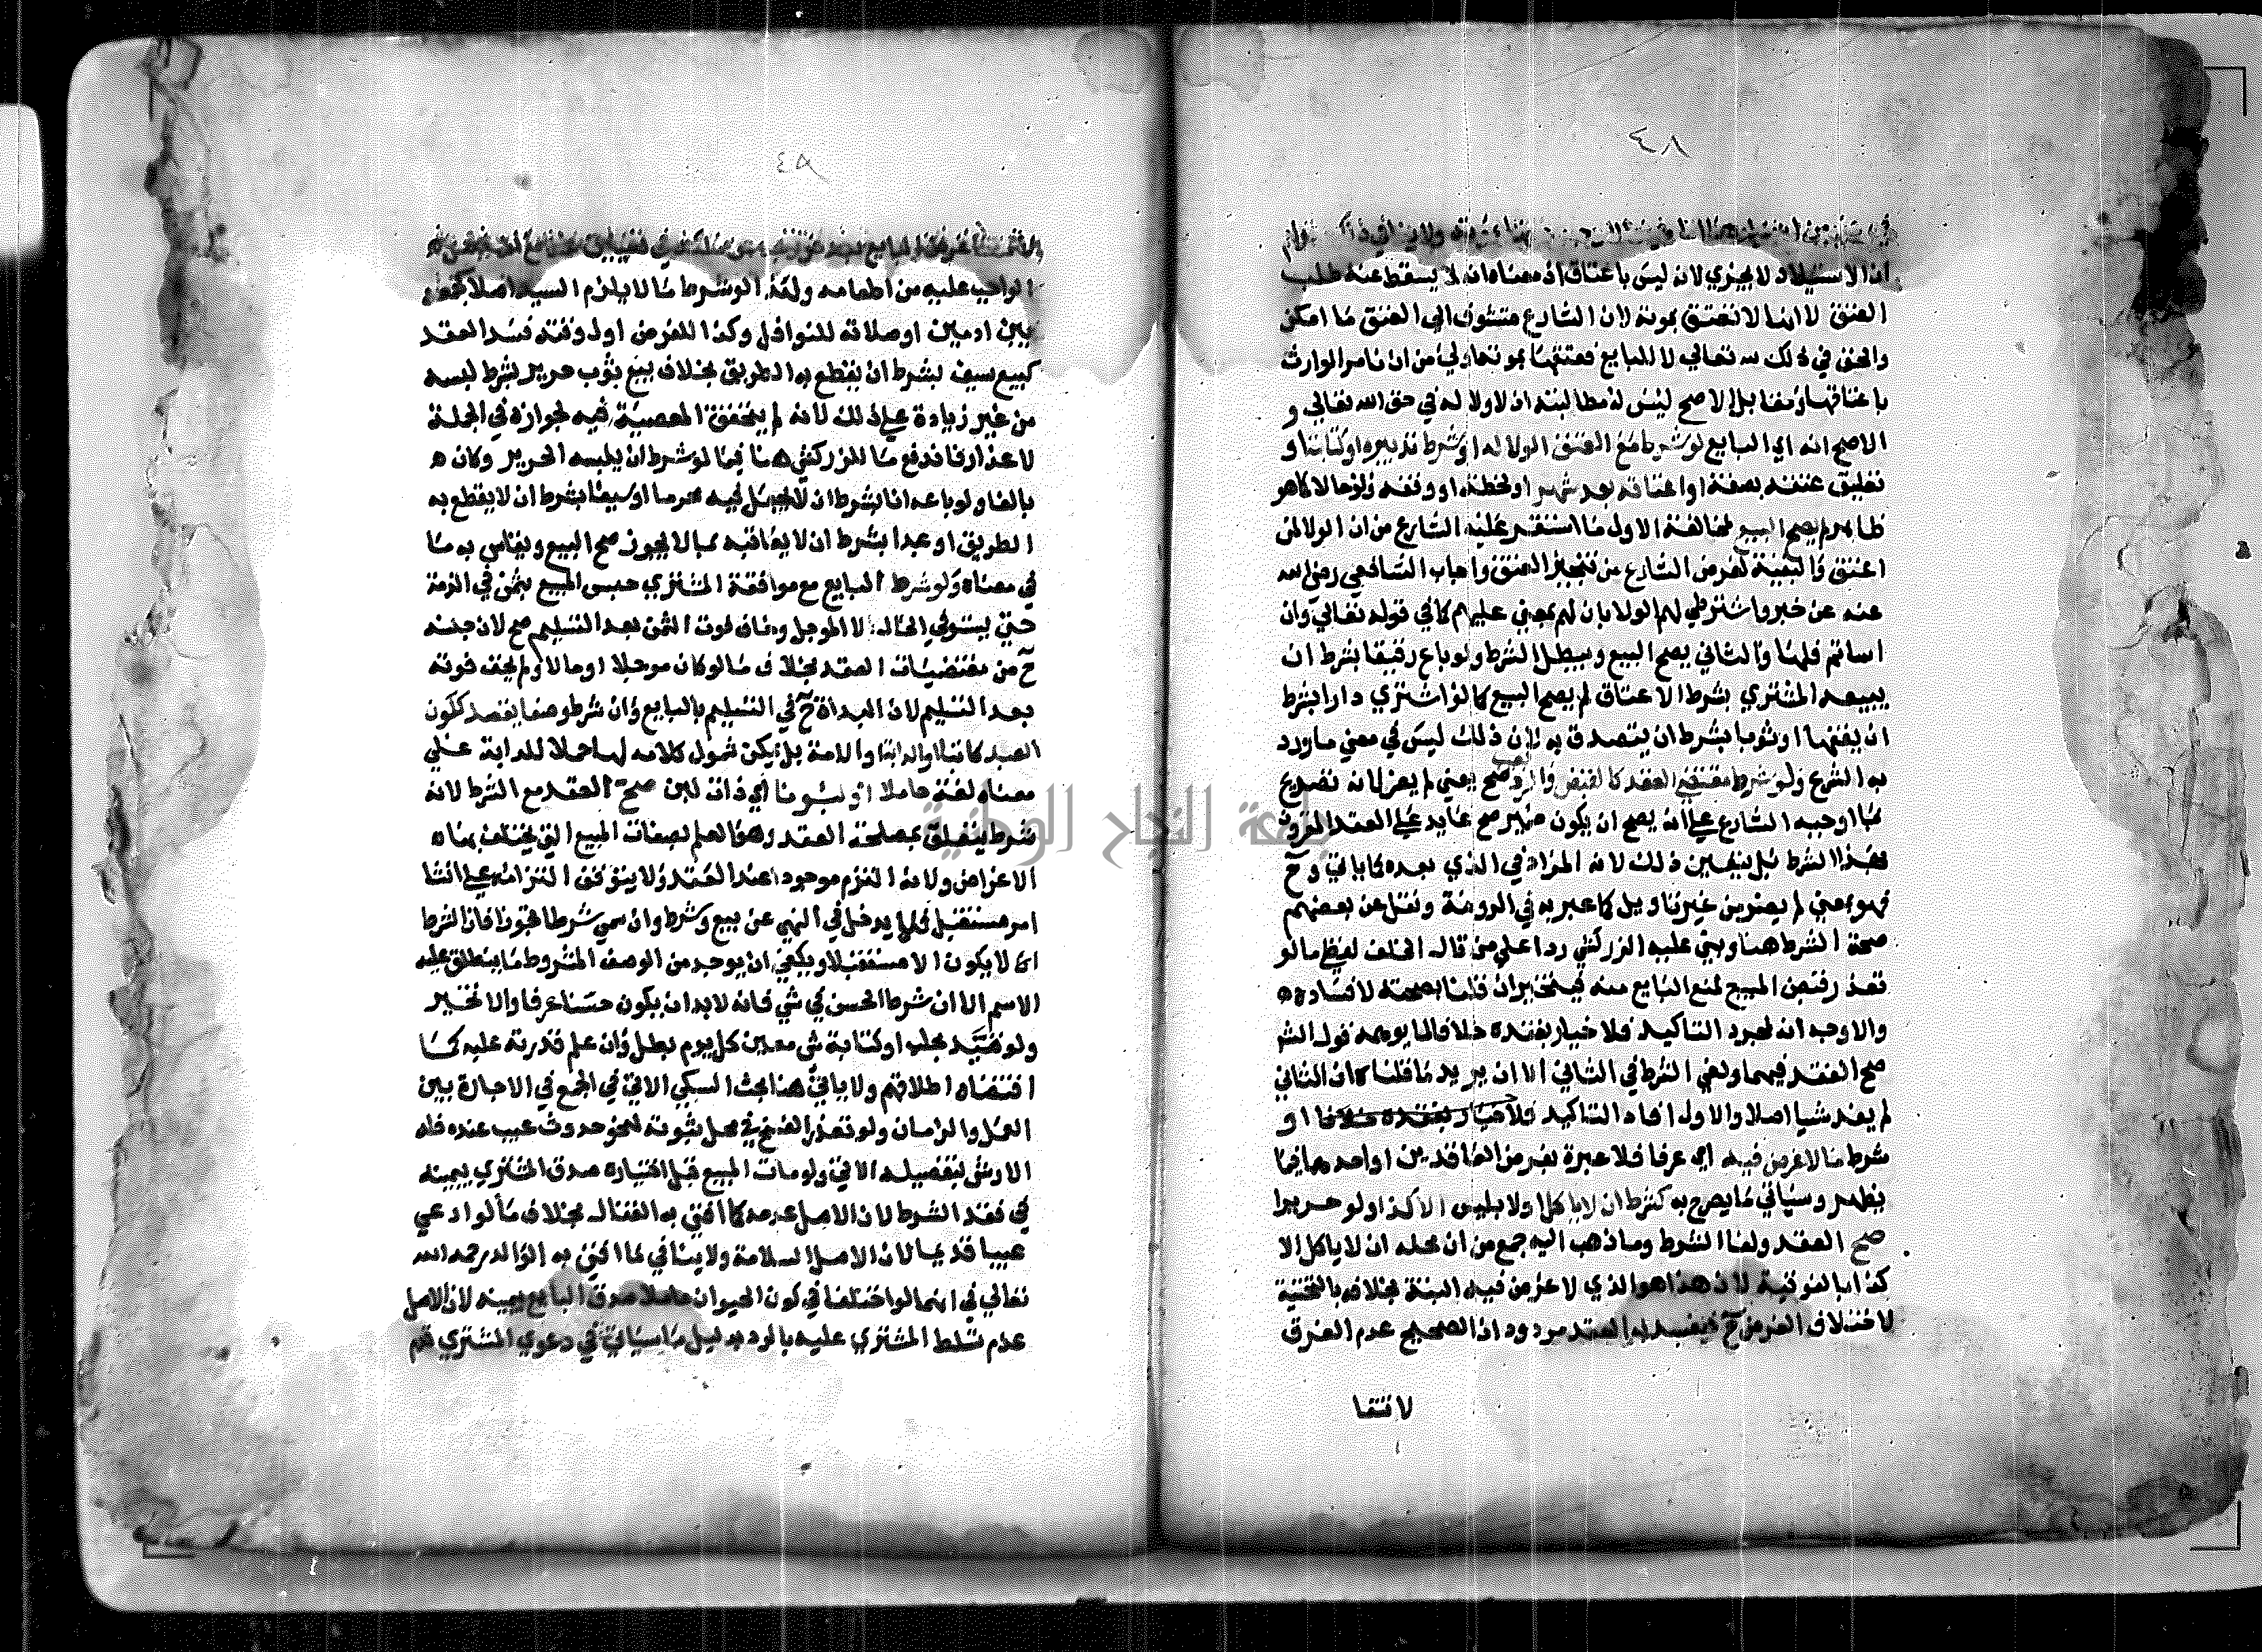 ٤٨
ان الاستيلاد لا يجزي لانه ليس باعتاق اذ معناه انه لا يسقط عنه طلب
العتق لا انها لا تعتق بموته لان الشارع متشوف الى العتق ما امكن
والحق في ذلك لله تعالي لا للبايع فعتقها بموته اولي من ان نامر الوارث
باعتاقها ومقابل الاصح ليس له مطالبته اذ لا ولا له في حق الله تعالي و
الاصح انه اي البايع لو شرط مع العتق الولا له او شرط تدبيره او كتابته او
تعليق عتقه بصفة او اعتاقه بعد شهر او لحظة او وقفه ولو حالا كما هو
ظاهر لم يصح البيع لمخالفة الاول ما استقر عليه الشارع من ان الولا لمن
اعتق والبقية لغرض الشارع من تنجيز العتق واجاب الشافعي رضي الله
عنه عن خبر واشترطي لهم الولا بان لهم بمعني عليهم كما في قوله تعالي وان
اساتم فلها والثاني يصح البيع ويبطل الشرط ولو باع رقيقا بشرط ان
يبيعه المشتري بشرط الاعتاق لم يصح البيع كما لو اشتري دارا بشرط
ان يقفها او ثوبا بشرط ان يتصدق به لان ذلك ليس في معني ما ورد
به الشرع ولو شرط مقتضي العقد كالقبض والرد صح يعني لم يضر لانه تصريح
بما اوجبه الشارع علي انه يصح ان يكون ضمير صح عايد علي العقد المقرون
بهذا الشرط بل يتعين ذلك لانه المراد في الذي بعده كما ياتي وح
فهو بمعني لم يضر من غير تاويل كما عبر به في الروضة ونقل عن بعضهم
صحة الشرط هنا وبني عليه الزركشي ردا علي من قال الخلف لفظي ما لو
تعذر قبض المبيع لمنع البايع منه فيتخير ان قلنا بصحته لا فساده
والاوجه انه لمجرد التاكيد فلا خيار بفقده خلافا لما يوهمه قول الشر
صح العقد فيهما ولغي الشرط في الثاني الا ان يريد ما قلناه ان الثاني
لم يفد شيا اصلا والاول افاد التاكيد فلا خيار بفقده خلافا او
شرط ما لا غرض فيه اي عرفا فلا عبرة بغرض العاقدين او احدهما فيما
يظهر وسياتي ما يصرح به كشرط ان لا ياكل او لا يلبس الا كذا ولو حريرا
صح العقد ولغا الشرط وما ذهب اليه جمع من ان محله ان لا ياكل الا
كذا بالفوقية لان هذا هو الذي لا غرض فيه البتة بخلافه بالتحتية
لاختلاف الغرض ح فيفسد به العقد مردود اذ الصحيح عدم الفرق
لانتفا
٤٩
الواجب عليه من اطعامه ولهذا لو شرط ما لا يلزم السيد اصلا كجمعه
بين ادمين او صلاته للنوافل وكذا للفرض اول وقته فسد العقد
كبيع سيف بشرط ان يقطع به الطريق بخلاف بيع ثوب حرير بشرط لبسه
من غير زيادة علي ذلك لانه لم يتحقق المعصية فيه لجوازه في الجملة
لاعذار فاندفع ما للزركشي هنا فيما لو شرط ان يلبسه الحرير وكان
بالغا ولو باعه انا بشرط ان لا يجعل فيه محرما او سيفا بشرط ان لا يقطع به
الطريق او عبدا بشرط ان لا يعاقبه بما لا يجوز صح البيع ويقاس به ما
في معناه ولو شرط البايع مع موافقة المشتري حبس المبيع بثمن في الذمة
حتي يستوفي الحال لا الموجل وخاف فوت الثمن بعد التسليم صح لان حبسه
ح من مقتضيات العقد بخلاف ما لو كان موجلا او حالا ولم يخف فوته
بعد التسليم لان البداة ح في التسليم بالبايع وان شرط وصفا يقصد ككون
العبد كاتبا او الدابة او الامة بل يمكن شمول كلامه لها حملا للدابة علي
معناه لغة حاملا او لبونا اي ذات لبن صح العقد مع الشرط لانه
شرط يتعلق بمصلحة العقد وهو العلم بصفات المبيع التي يختلف بها
الاعراض ولانه التزم موجودا عند العقد ولا يتوقف التزامه علي انشا
امر مستقبل فلم يدخل في النهي عن بيع وشرط وان سمي شرطا تجوزا فان الشرط
انما لا يكون الا مستقبلا ويكفي ان يوجد من الوصف المشروط ما ينطلق عليه
الاسم الا ان شرط الحسن في شي فانه لا بد ان يكون حسنا عرفا والا تخير
ولو قيد بحلب او كتابة شي معين كل يوم بطل وان علم قدرته عليه كما
اقتضاه اطلاقهم ولا ياتي هنا بحث السبكي الاتي في الجمع في الاجارة بين
العمل والزمان ولو تعذر الفسخ في محل ثبوته لنحو حدوث عيب عنده فله
الارش بتفصيله الاتي ولو مات المبيع قبل اختياره صدق المشتري بيمينه
في فقد الشرط لان الاصل عدمه كما افتي به القفال بخلاف ما لو ادعي
عيبا قديما لان الاصل السلامة ولا ينافي لما افتي به الوالد رحمه الله
تعالي في انهما لو اختلفا في كون الحيوان حاملا صدق البايع بيمينه لان الاصل
عدم تسلط المشتري عليه بالرد بدليل ما سياتي في دعوي المشتري قدم
جامعة النجاح الوطنية